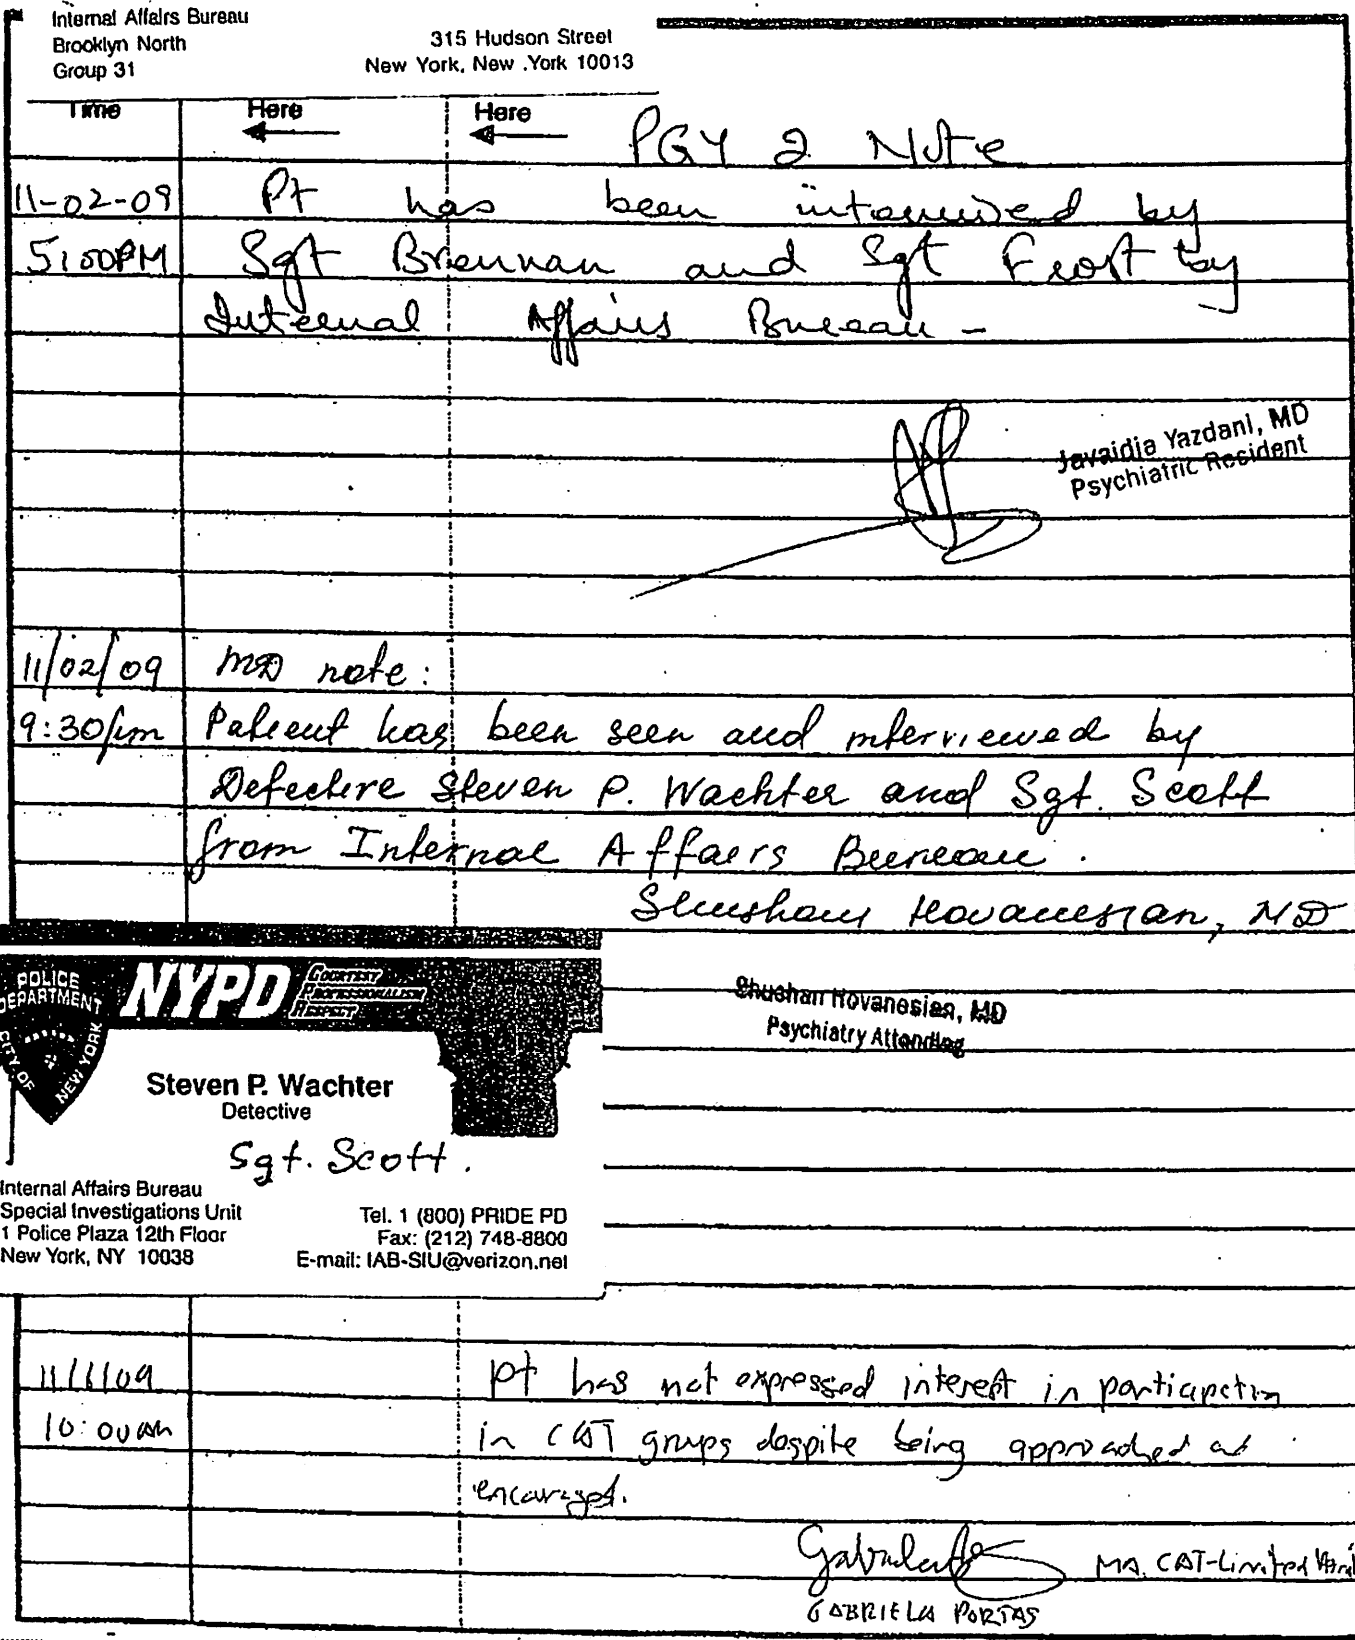 Internal Affairs Bureau
Brooklyn North
Group 31
315 Hudson Street
New York, New .York 10013
Time Here Here
PGY 2 Note
11-02-09 Pt has been interviewed by
5:00PM Sgt Brennan and Sgt Frost by
Internal Affairs Bureau -
Javaidia Yazdani, MD
Psychiatric Resident
11/02/09 MD note:
9:30pm Patient has been seen and interviewed by
Detective Steven P. Wachter and Sgt. Scott
from Internal Affairs Bureau.
Shushan Hovanesian, MD
POLICE DEPARTMENT
CITY OF NEW YORK
NYPD
COURTESY
PROFESSIONALISM
RESPECT
Shushan Hovanesian, MD
Psychiatry Attending
Steven P. Wachter
Detective
Sgt. Scott.
Internal Affairs Bureau
Special Investigations Unit
1 Police Plaza 12th Floor
New York, NY 10038
Tel. 1 (800) PRIDE PD
Fax: (212) 748-8800
E-mail: IAB-SIU@verizon.net
pt has not expressed interest in participation
10:00am in CAT groups despite being approached and
encouraged.
MA, CAT-Limited
GABRIELA PORTAS